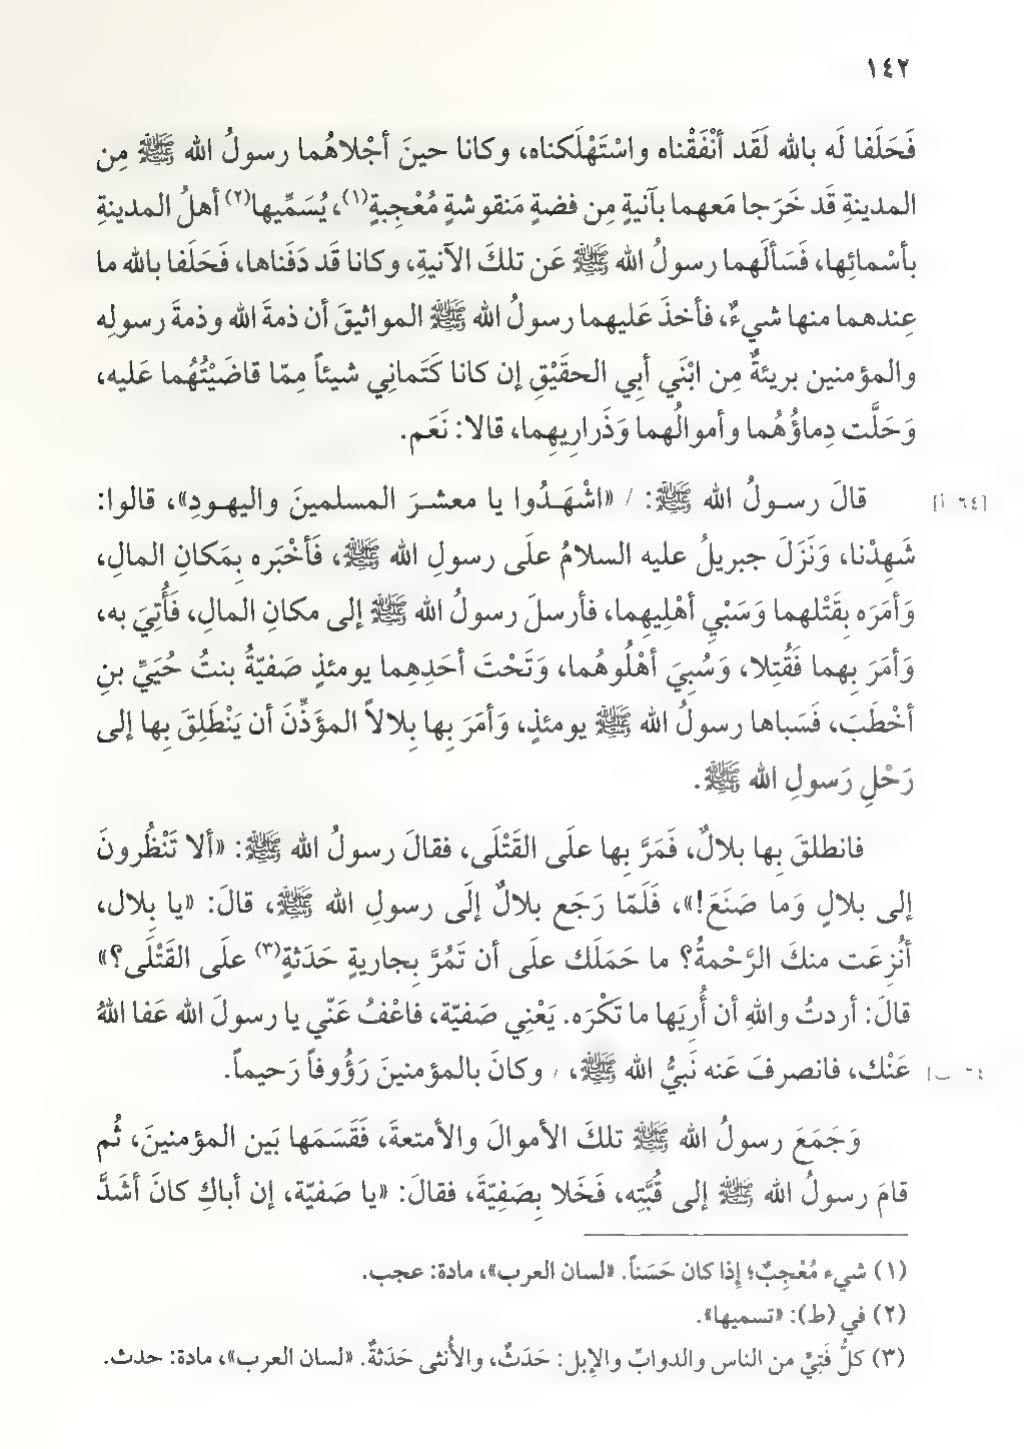 ١٤٢
فَحَلَفا لَه بالله لَقَد أنْفَقْناه واسْتَهْلَكناه، وكانا حينَ أجْلاهُما رسولُ الله ﷺ مِن
المدينةِ قَد خَرَجا مَعهما بآنيةٍ مِن فضةٍ مَنقوشةٍ مُعْجِبةٍ(١)، يُسَمِّيها(٢) أهلُ المدينةِ
بأسْمائِها، فَسَألَهما رسولُ الله ﷺ عَن تلكَ الآنيةِ، وكانا قَد دَفَناها، فَحَلَفا بالله ما
عِندهما منها شيءٌ، فأخذَ عَليهما رسولُ الله ﷺ المواثيقَ أن ذمةَ الله وذمةَ رسولِه
والمؤمنين بريئةٌ مِن ابْنَي أبِي الحقَيْقِ إن كانا كَتَمانِي شيئاً مِمّا قاضَيْتُهُما عَليه،
وَحَلَّت دِماؤُهُما وأموالُهما وَذَرارِيهِما، قالا: نَعَم.
قالَ رسـولُ الله ﷺ: / «اشْهَـدُوا يا معشـرَ المسلمينَ واليهـودِ»، قالوا: [٦٤ أ]
شَهِدْنا، وَنَزَلَ جبريلُ عليه السلامُ علَى رسولِ الله ﷺ، فَأخْبَره بِمَكانِ المالِ،
وَأمَرَه بِقَتْلهما وَسَبْيِ أهْلِيهِما، فأرسلَ رسولُ الله ﷺ إلى مكانِ المالِ، فَأُتِيَ به،
وَأمَرَ بِهما فَقُتِلا، وَسُبِيَ أهْلُوهُما، وَتَحْتَ أحَدِهِما يومئذٍ صَفيّةُ بنتُ حُيَيِّ بنِ
أخْطَبَ، فَسَباها رسولُ الله ﷺ يومئذٍ، وَأمَرَ بِها بِلالاً المؤَذِّنَ أن يَنْطَلِقَ بِها إلى
رَحْلِ رَسولِ الله ﷺ.
فانطلقَ بِها بلالٌ، فَمَرَّ بِها علَى القَتْلَى، فقالَ رسولُ الله ﷺ: «ألا تَنْظُرونَ
إلى بلالٍ وَما صَنَعَ!»، فَلَمّا رَجَع بلالٌ إلَى رسولِ الله ﷺ، قالَ: «يا بِلال،
أنُزِعَت منكَ الرَّحْمةُ؟ ما حَمَلَك علَى أن تَمُرَّ بِجاريةٍ حَدَثةٍ(٣) علَى القَتْلَى؟»
قالَ: أردتُ واللهِ أن أُرِيَها ما تَكْرَه. يَعْنِي صَفيّة، فاعْفُ عَنّي يا رسولَ الله عَفا اللهُ
عَنْك، فانصرفَ عَنه نَبيُّ الله ﷺ، / وكانَ بالمؤمنينَ رَؤُوفاً رَحيماً.
وَجَمَعَ رسولُ الله ﷺ تلكَ الأموالَ والأمتعةَ، فَقَسَمَها بَين المؤمنينَ، ثُم
قامَ رسولُ الله ﷺ إلى قُبَّتِه، فَخَلا بِصَفِيّةَ، فقالَ: «يا صَفيّة، إن أباكِ كانَ أشَدَّ
(١) شيء مُعْجِبٌ؛ إذا كان حَسَناً. «لسان العرب»، مادة: عجب.
(٢) في (ط): «تسميها».
(٣) كلُّ فَتِيٍّ من الناس والدوابِّ والإبل: حَدَثٌ، والأُنثى حَدَثةٌ. «لسان العرب»، مادة: حدث.